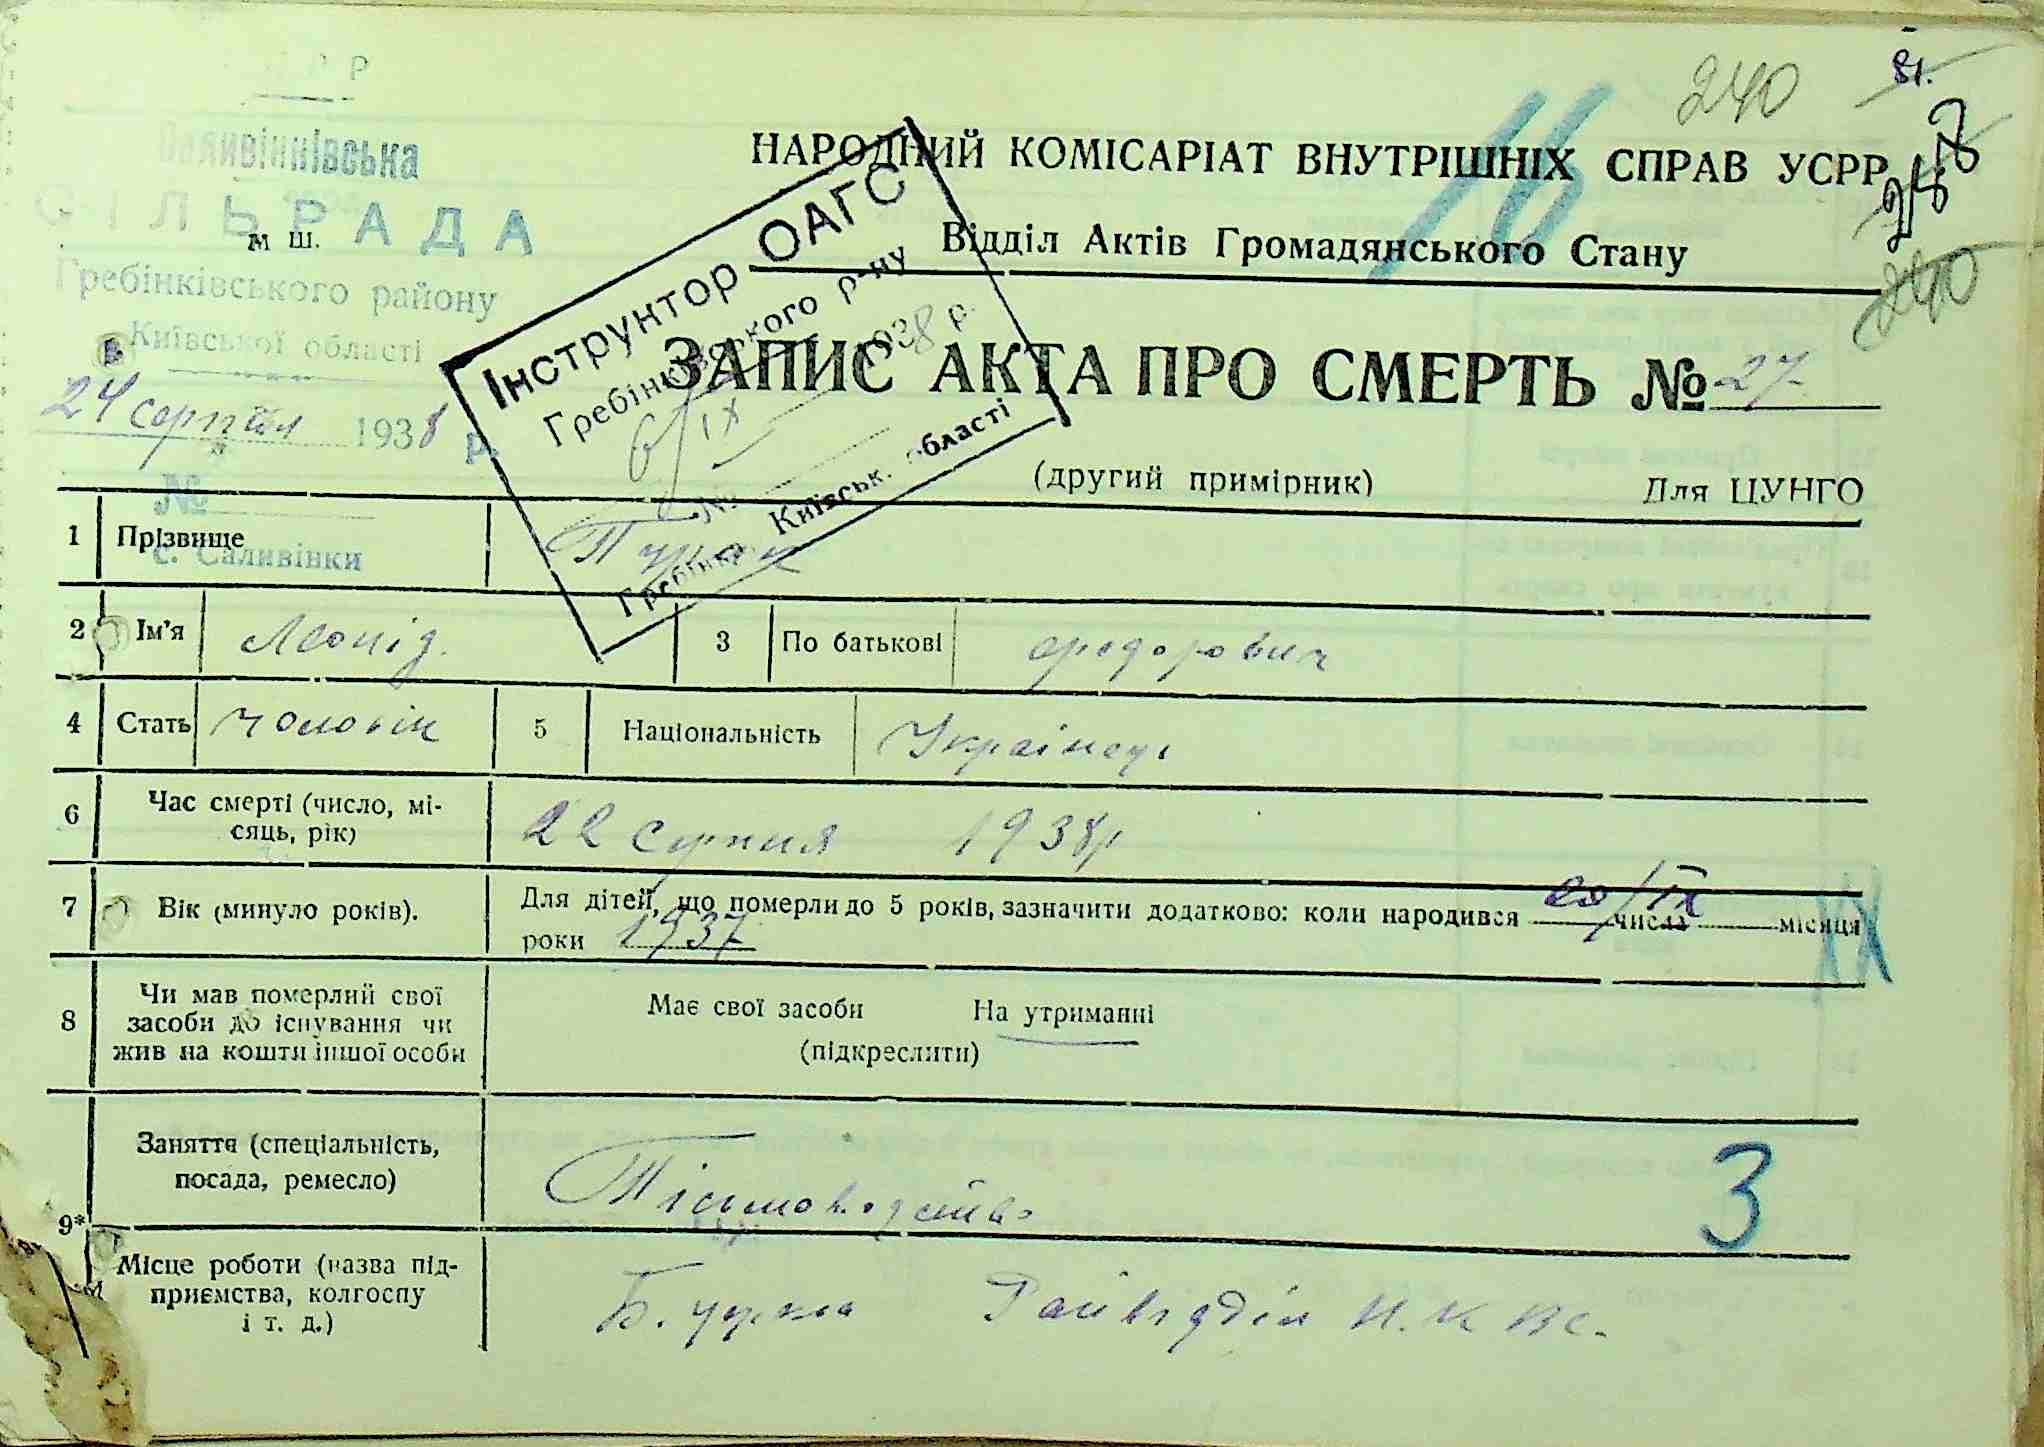 240
81.
НАРОДНИЙ КОМІСАРІАТ ВНУТРІШНІХ СПРАВ УСРР
16
Відділ Актів Громадянського Стану
240
СІЛЬРАДА
м ш.
Гребінківського району
Київської області
24 серпня 1938 р.
№
с. Саливінки
Інструктор ОАГС
Гребінківського р-ну
6/ІХ 1938 р.
№
Київськ. області
ЗАПИС АКТА ПРО СМЕРТЬ № 27
(другий примірник) Для ЦУНГО
1 Прізвище
2 Ім'я Леонід. 3 По батькові Федорович
4 Стать чоловік 5 Національність Українець
6 Час смерті (число, мі-
сяць, рік) 22 серпня 1938р
7 Вік (минуло років). Для дітей, що померли до 5 років, зазначити додатково: коли народився 20/ІХ числа місяця
роки 1937
8 Чи мав померлий свої
засоби до існування чи
жив на кошти іншої особи
Має свої засоби На утриманні
(підкреслити)
9* Заняття (спеціальність,
посада, ремесло)
Місце роботи (назва під-
приємства, колгоспу
і т. д.) Райвідділ Н.К.ВС.
3